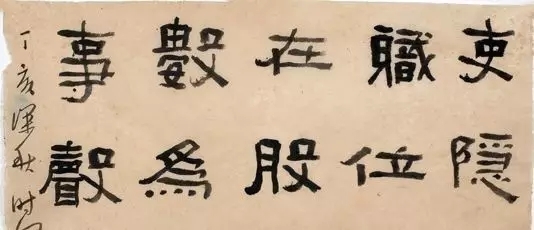 吏隐
職位
在股
數為
事聲
丁亥深秋时